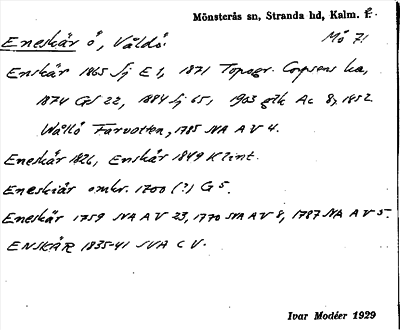 Mönsterås sn, Stranda hd, Kalm. l.
Eneskär ö, Våldö. Mö 71
Enskär 1865 Sj E 1, 1871 Topogr. Corpsens ka,
1874 GS 22, 1884 Sj 65, 1903 gtk Ac 8, 1852
Wållö Farvatten, 1785 SVA A V 4.
Eneskär 1826, Enskär 1849 Klint.
Eneskiär omkr. 1700 (?) G 5.
Eneskär 1759 SVA A V 23, 1770 SVA A V 8, 1787 SVA A V 5.
ENSKÄR 1835-41 SVA C V.
Ivar Modéer 1929